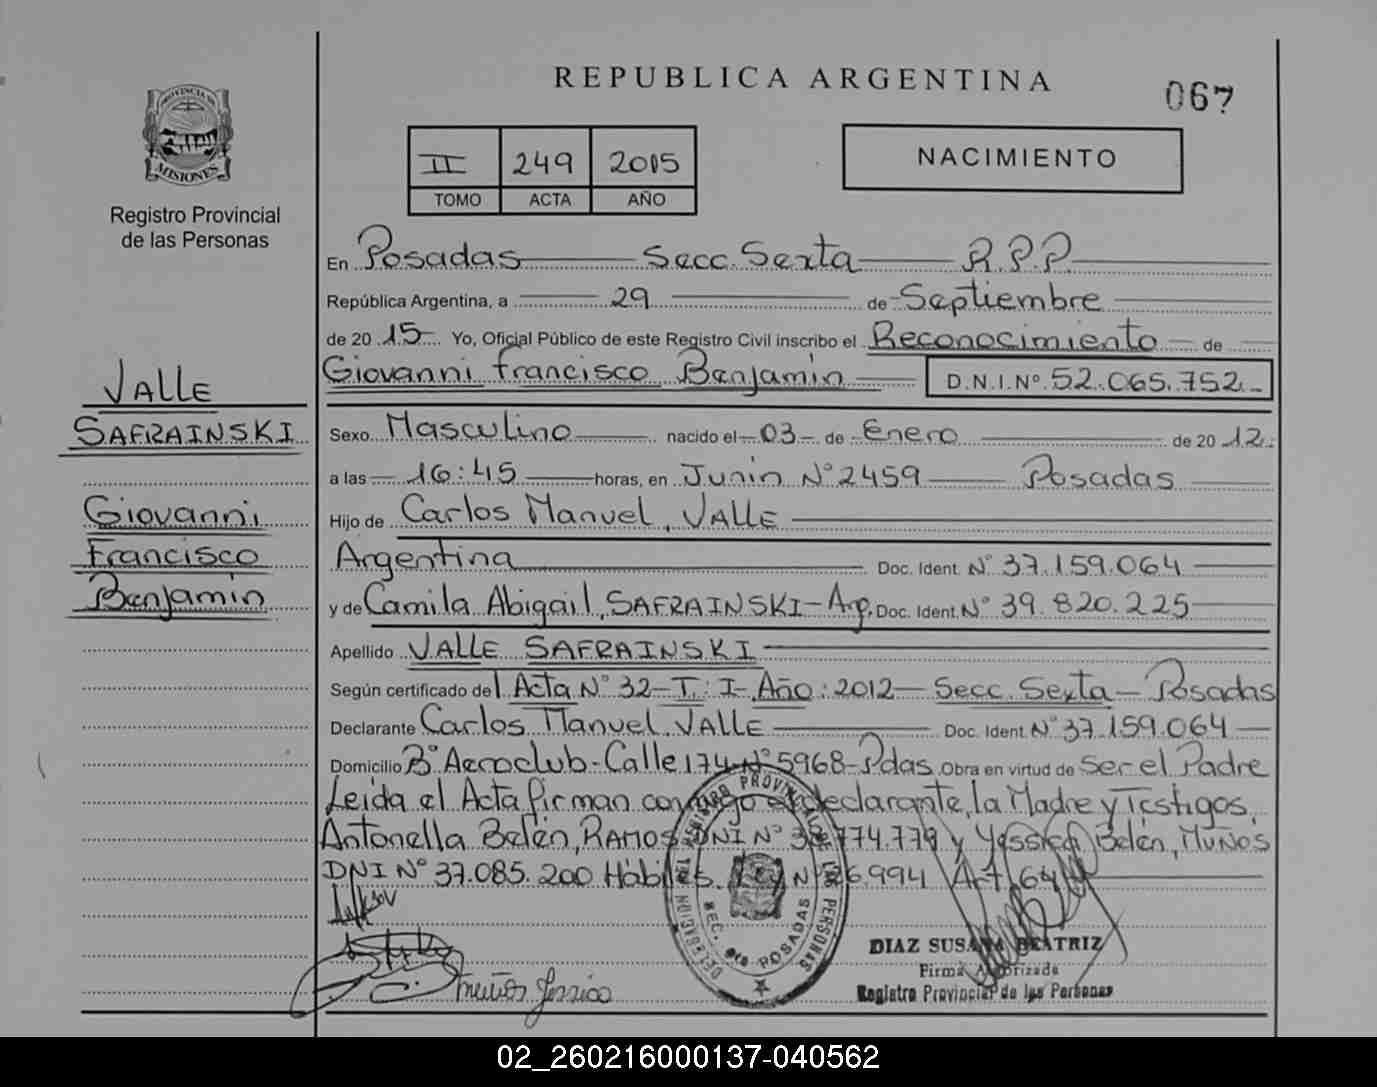 REPUBLICA ARGENTINA
067
PROVINCIA DE
MISIONES
Registro Provincial
de las Personas
II 249 2015
TOMO ACTA AÑO
NACIMIENTO
En Posadas Secc. Sexta R.P.P.
República Argentina, a 29 de Septiembre
de 2015 Yo, Oficial Público de este Registro Civil inscribo el Reconocimiento de
Giovanni Francisco Benjamín D.N.I.Nº 52.065.752
VALLE
SAFRAINSKI
Giovanni
Francisco
Benjamín
Sexo Masculino nacido el 03 de Enero de 2012
a las 16:45 horas, en Junin Nº 2459 Posadas
Hijo de Carlos Manuel, VALLE
Argentina Doc. Ident. Nº 37.159.064
y de Camila Abigail, SAFRAINSKI-Arg. Doc. Ident. Nº 39.820.225
Apellido VALLE SAFRAINSKI
Según certificado del Acta Nº 32-T: I-Año: 2012- Secc. Sexta - Posadas
Declarante Carlos Manuel. VALLE Doc. Ident. Nº 37.159.064
Domicilio Bº Aeroclub-Calle 174-Nº 5968-Pdas. Obra en virtud de Ser el Padre
Leída el Acta firman conmigo el declarante, la Madre y Testigos,
Antonella Belén, RAMOS DNI Nº 774.779 y Yessica Belén, MUÑOS
DNI Nº 37.085.200 Hábiles. Ley Nº 26.994 Art 64
REGISTRO PROVINCIAL DE LAS PERSONAS
DELEGACION
SEC. 6ta POSADAS
DIAZ SUSANA BEATRIZ
Firma Autorizada
Registro Provincial de las Personas
Muños Jessica
02_260216000137-040562